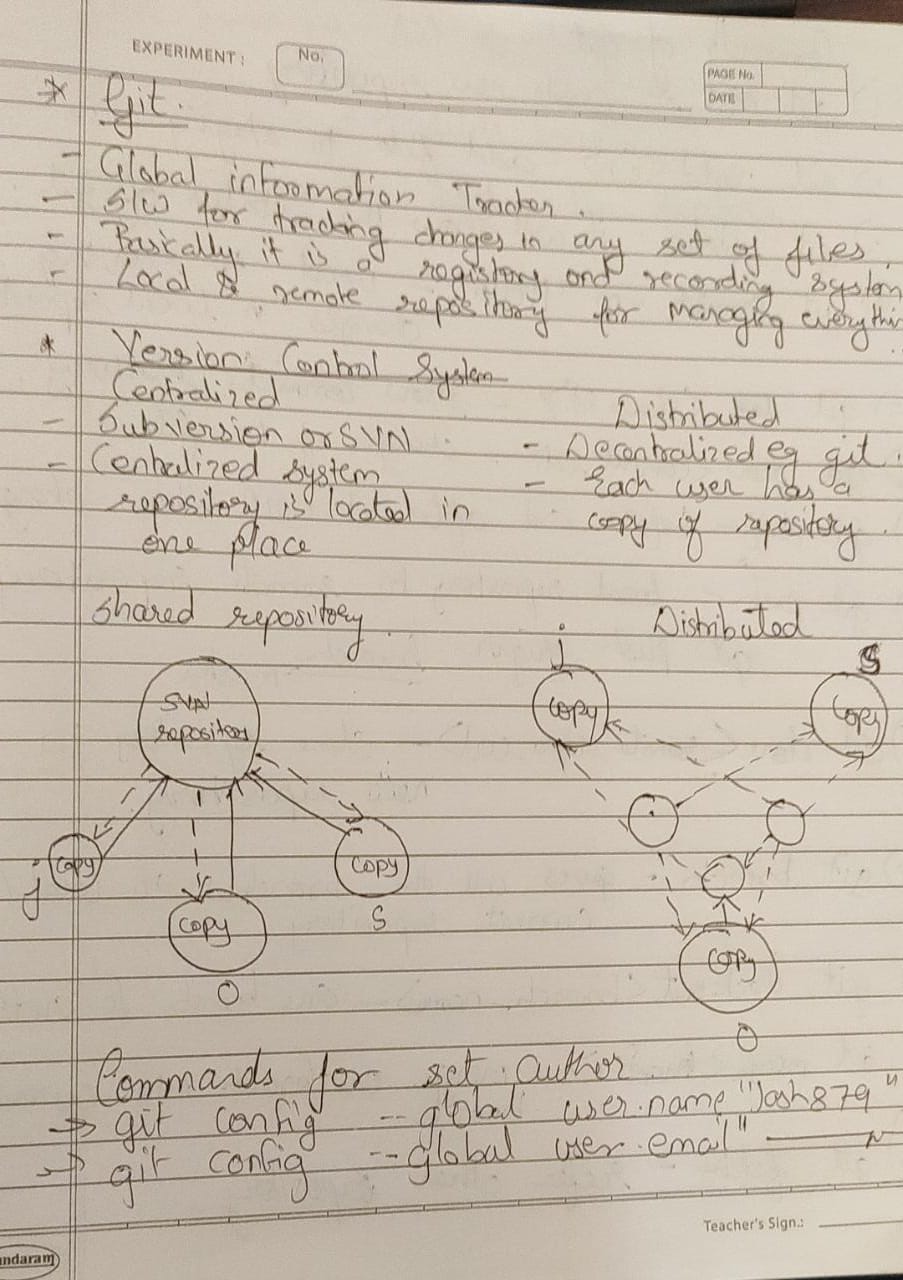 EXPERIMENT :
No.
PAGE No.
DATE
* Git.
- Global information Tracker.
- S/W for tracking changes in any set of files.
- Basically it is a registory and recording system
- Local & remote repository for managing everythin
* Version Control System
Centralized
Distributed
- Subversion or SVN
- Decentralized eg git.
- Centralized system
repository is located in
one place
- Each user has a
copy of repository.
Shared repository.
Distributed
SVN
repository
copy
j
copy
O
copy
S
j
copy
S
copy
copy
O
Commands for set author.
→ git config --global user.name "Josh879"
→ git config --global user.email "
Teacher's Sign.:
ndaram